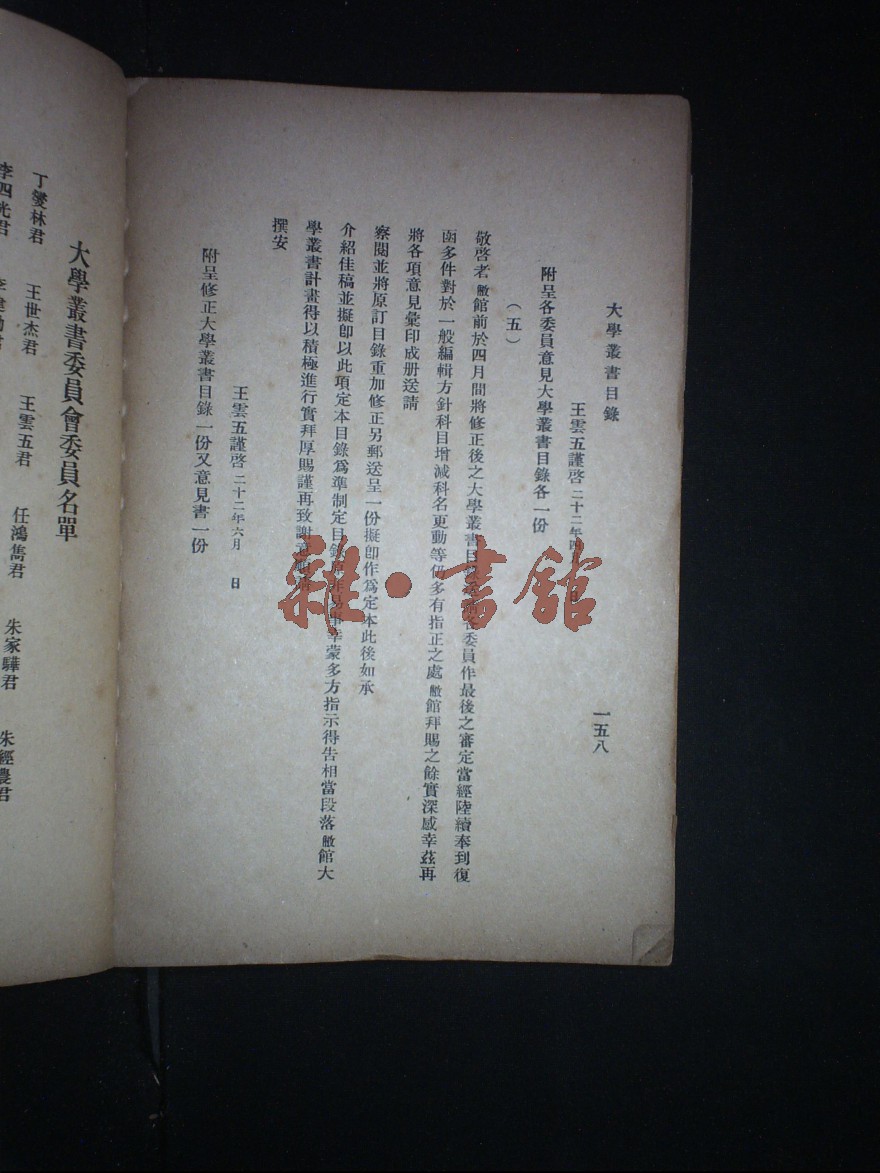 大學叢書目錄
一五八
王雲五謹啓 二十二年四
附呈各委員意見大學叢書目錄各一份
(五)
敬啓者敝館前於四月間將修正後之大學叢書目錄送請各委員作最後之審定當經陸續奉到復
函多件對於一般編輯方針科目增減科名更動等仍多有指正之處敝館拜賜之餘實深感幸茲再
將各項意見彙印成册送請
察閱並將原訂目錄重加修正另郵送呈一份擬卽作爲定本此後如承
介紹佳稿並擬卽以此項定本目錄爲準制定目錄事幸蒙多方指示得告相當段落敝館大
學叢書計畫得以積極進行實拜厚賜謹再致謝意
撰安
王雲五謹啓 二十二年六月 日
附呈修正大學叢書目錄一份又意見書一份
大學叢書委員會委員名單
丁燮林君 王世杰君 王雲五君 任鴻雋君 朱家驊君 朱經農君
李四光君
雜·書館